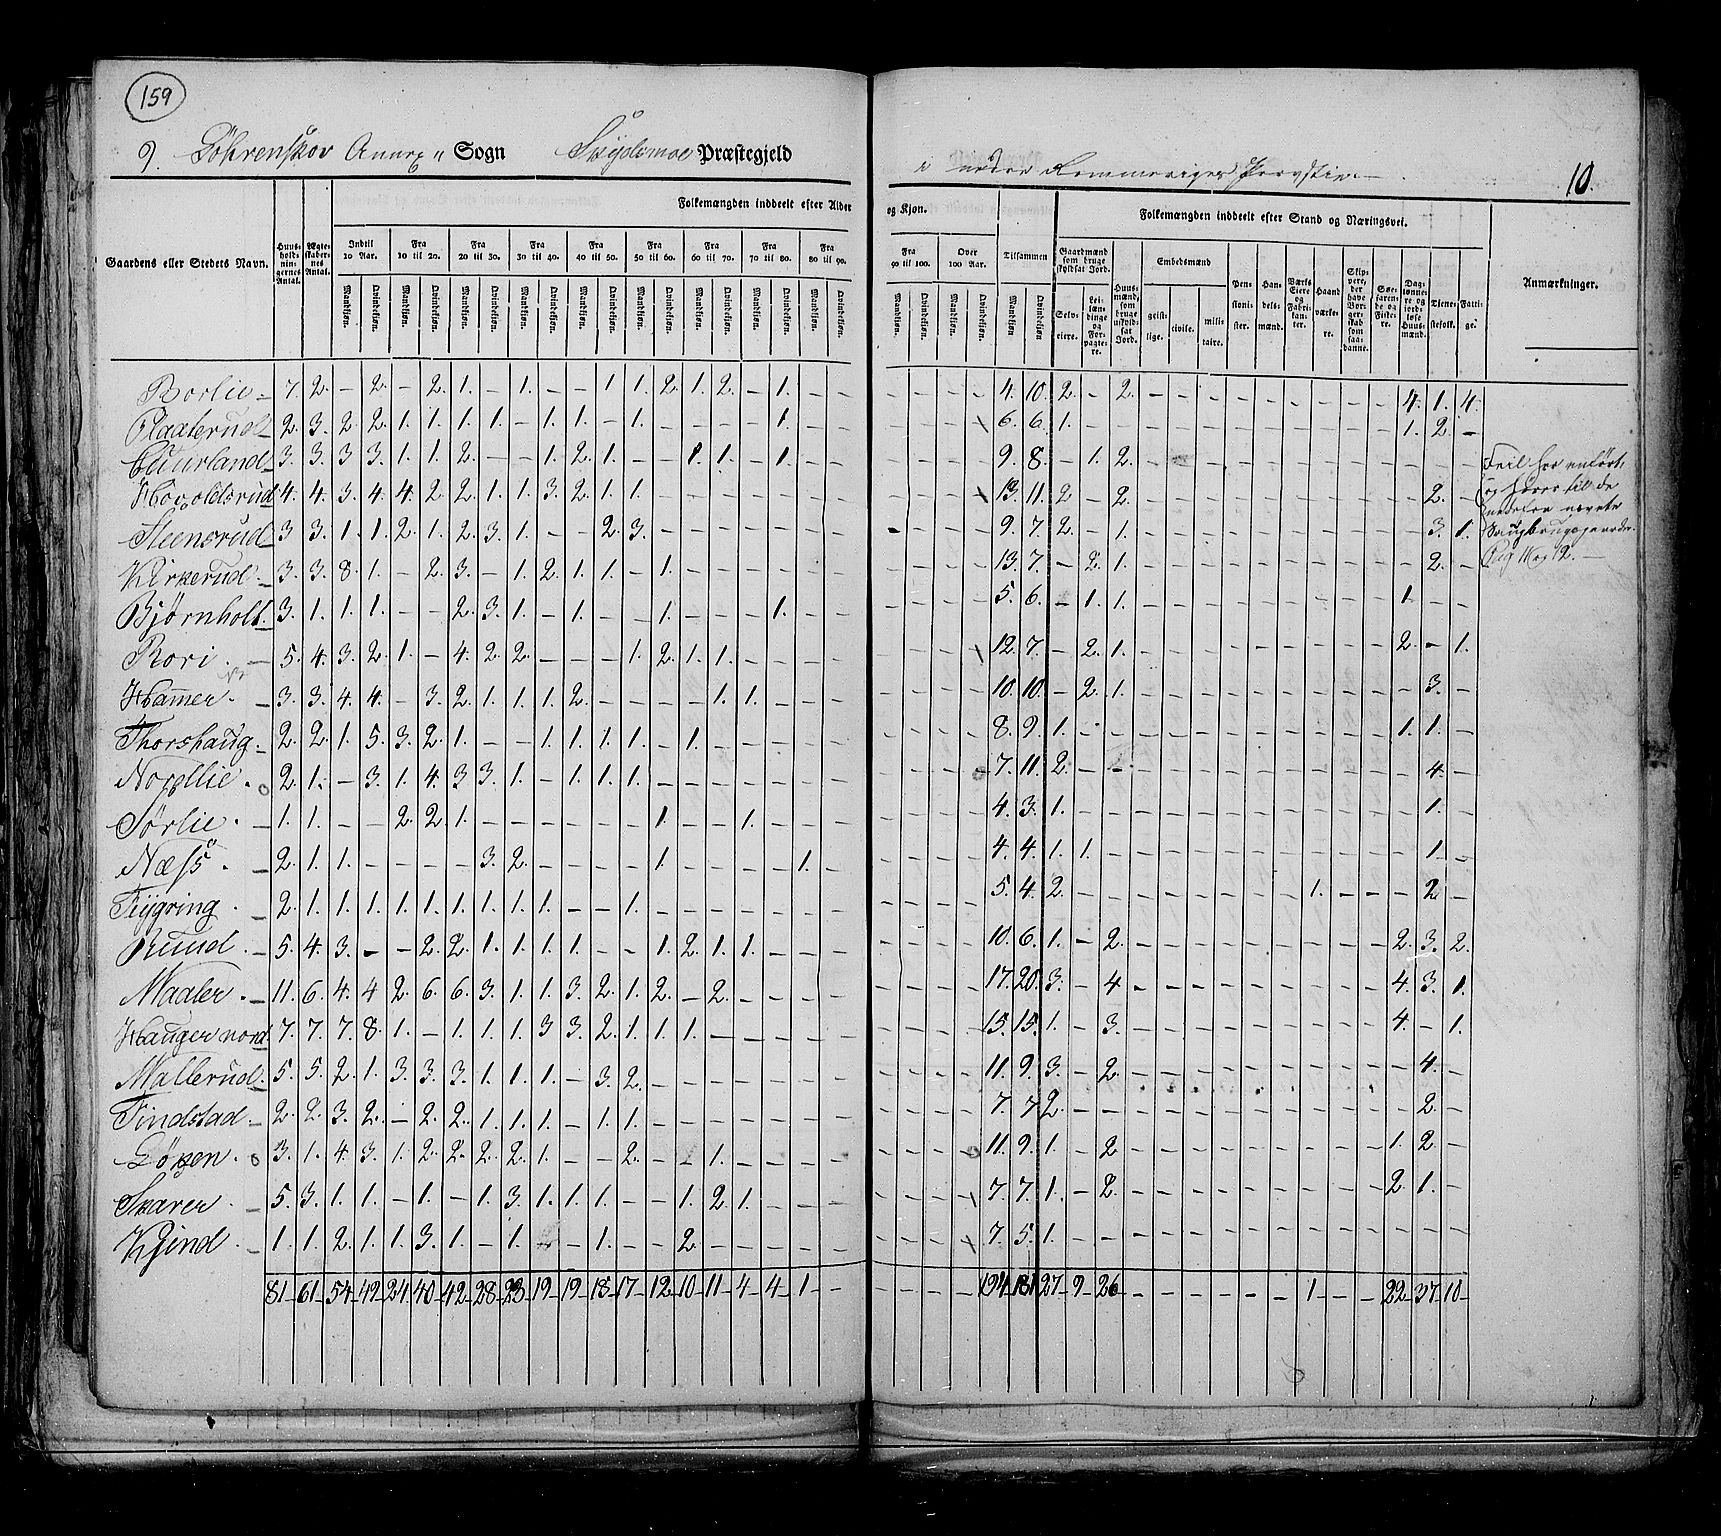 159
9. Løhrenskov Annex " Sogn Skydsmoe Præstegjeld i nedre Rommeriges Provstie. 10.
Gaardens eller Stedets Navn. Huusholdningernes Antal. Ægteskabernes Antal. Folkemængden inddeelt efter Alder og Kjøn. Folkemængden inddeelt efter Stand og Næringsvei. Anmærkninger.
Indtil 10 Aar. Fra 10 til 20. Fra 20 til 30. Fra 30 til 40. Fra 40 til 50. Fra 50 til 60. Fra 60 til 70. Fra 70 til 80. Fra 80 til 90. Fra 90 til 100. Over 100 Aar. Tilsammen
Mandkjøn. Qvindekjøn. Mandkjøn. Qvindekjøn. Mandkjøn. Qvindekjøn. Mandkjøn. Qvindekjøn. Mandkjøn. Qvindekjøn. Mandkjøn. Qvindekjøn. Mandkjøn. Qvindekjøn. Mandkjøn. Qvindekjøn. Mandkjøn. Qvindekjøn. Mandkjøn. Qvindekjøn. Mandkjøn. Qvindekjøn. Mandkjøn. Qvindekjøn
Gaardmænd som bruge skyldsat Jord. Selveiere. Leilændinge og Forpagtere. Huusmænd, som bruge uskyldsat Jord. Embedsmænd geistlige. civile. militaire. Pensionister. Handelsmænd. Værks Eiere og Fabrikanter. Haandværkere. Skippere, der have Borgerskab som saadanne. Søefarende og Fiskere. Dagslønnere og jordløse Huusmænd. Tienestefolk. Fattige.
Borlie 7. 2. – 2. – 2. 1. – 1. – – 1. 1. 2. 1. 2. – 1. – – – – – – 4. 10. 2. – 2. – – – – – – – – – 4. 1. 4.
2. 3. 2. 2. 1. 1. 1. 1. – 1. 1. – 1. – – – – 1. – – – – – 6. 6. 1. – – – – – – – – – – – 1. 2. –
Cuurland 3. 3. 3. 3. 1. 1. 2. – – 1. 2. 1. – – 1. 1. – 1. – – – – – – 9. 8. – 1. 2. – – – – – – – – – – – –
4. 4. 3. 4. 4. 2. 2. 1. 1. 3. 2. 1. 1. – – – – – – – – – – 13. 11. 2. – 2. – – – – – – – – – – 2. –
Steensrud 3. 3. 1. 1. 2. 1. 2. 3. 1. – – 2. 3. – – – – – – – – – – – 9. 7. 2. – 1. – – – – – – – – – – 3. 1.
Kirkerud 3. 3. 8. 1. – 2. 3. – 1. 2. 1. 1. – 1. – – – – – – – – – – 13. 7. – 2. 1. – – – – – – – – – – 2. –
Bjørnholt 3. 1. 1. 1. – – 2. 3. 1. – 1. – – 1. – – – 1. – – – – – – 5. 6. – 1. 1. – – – – – – – – – 1. – –
Rori 5. 4. 3. 2. 1. – 4. 2. 2. – – – 1. 2. 1. 1. – – – – – – – 12. 7. – 2. 1. – – – – – – – – – 2. – 1.
Hamer 3. 3. 4. 4. – 3. 2. 1. 1. 1. 2. – – – – 1. 1. – – – – – – – 10. 10. – 2. 1. – – – – – – – – – – 3. –
Thorshaug 2. 2. 1. 5. 3. 2. 1. – – 1. 1. 1. 1. – 1. – – – – – – – – – 8. 9. 1. – – – – – – – – – – – 1. 1. –
Nordlie 2. 1. – 3. 1. 4. 3. 3. 1. – 1. 1. 1. – – – – – – – – – – 7. 11. 2. – – – – – – – – – – – – 4. –
Sørlie 1. 1. – – 2. 2. 1. – – – – – – 1. – – 1. – – – – – – – 4. 3. 1. – – – – – – – – – – – – 1. –
Næss 2. 1. 1. – – – – 3. 2. – – – – 1. – – – – 1. – – – – – 4. 4. 1. 1. – – – – – – – – – – – 1. –
Fiygring 2. 1. 1. 1. 1. 1. 1. 1. 1. 1. – – 1. – – – – – – – – – – – 5. 4. 2. – – – – – – – – 1. – – – 2. –
Ruud 5. 4. 3. – – 2. 2. 1. 1. 1. 1. – – 1. 2. 1. 1. – – – – – – – 10. 6. 1. – 2. – – – – – – – – – 2. 3. 2.
Maaler 11. 6. 4. 4 2. 6. 6. 3. 1. 1. 3. 2. 1. 2. – 2. – – – – – – – – 17. 20. 3. – 4 – – – – – – – – – 4. 3. 1.
Hauger nord 7. 7. 7. 8. 1. – 1. 1. 1. 3 3. 2. 1. 1. 1. – – – – – – – – – 15. 15. 1. – 3. – – – – – – – – – 4. – 1.
Mallerud 5. 5. 2. 1. 3. 3. 3. 1. 1. 1. – 3. 2. – – – – – – – – – – – 11. 9. 3. – 2. – – – – – – – – – – 4. –
Findstad 2. 2. 3. 2. – 2. 2. 1. 1. 1. – 1. 1. – – – – – – – – – – – 7. 7 2. – – – – – – – – – – – – 2. –
Løken 3. 1. 4. 3. 1. 2. 2. 2. 2. 1. – – 2. – – 1. – – – – – – – 11. 9. 1. – 2 – – – – – – – – – 1. 2. –
Skarer 5. 3. 1. 1. – 1. – 1. 3. 1. 1. 1. – – 1. 2. 1. – – – – – – 7. 7. 1. – 2. – – – – – – – – – 2. 1. –
Kjind 1. 1. 2. 1. 1. 3. 1. – 1. – – 1. – – 2. – – – – – – – – 7. 5. 1. – – – – – – – – – – – – – –
81 61 54 49 24 40 42 28 23 19 19 18 17 12 10 11 4 4 1 – – – – – 194 181 27 9 26 – – – – – – 1 – – 22 37 10
Feil her anført,
og hører til de
nedenfor nævnte
Saugbrugsgaarder
Pag 11 og 12.